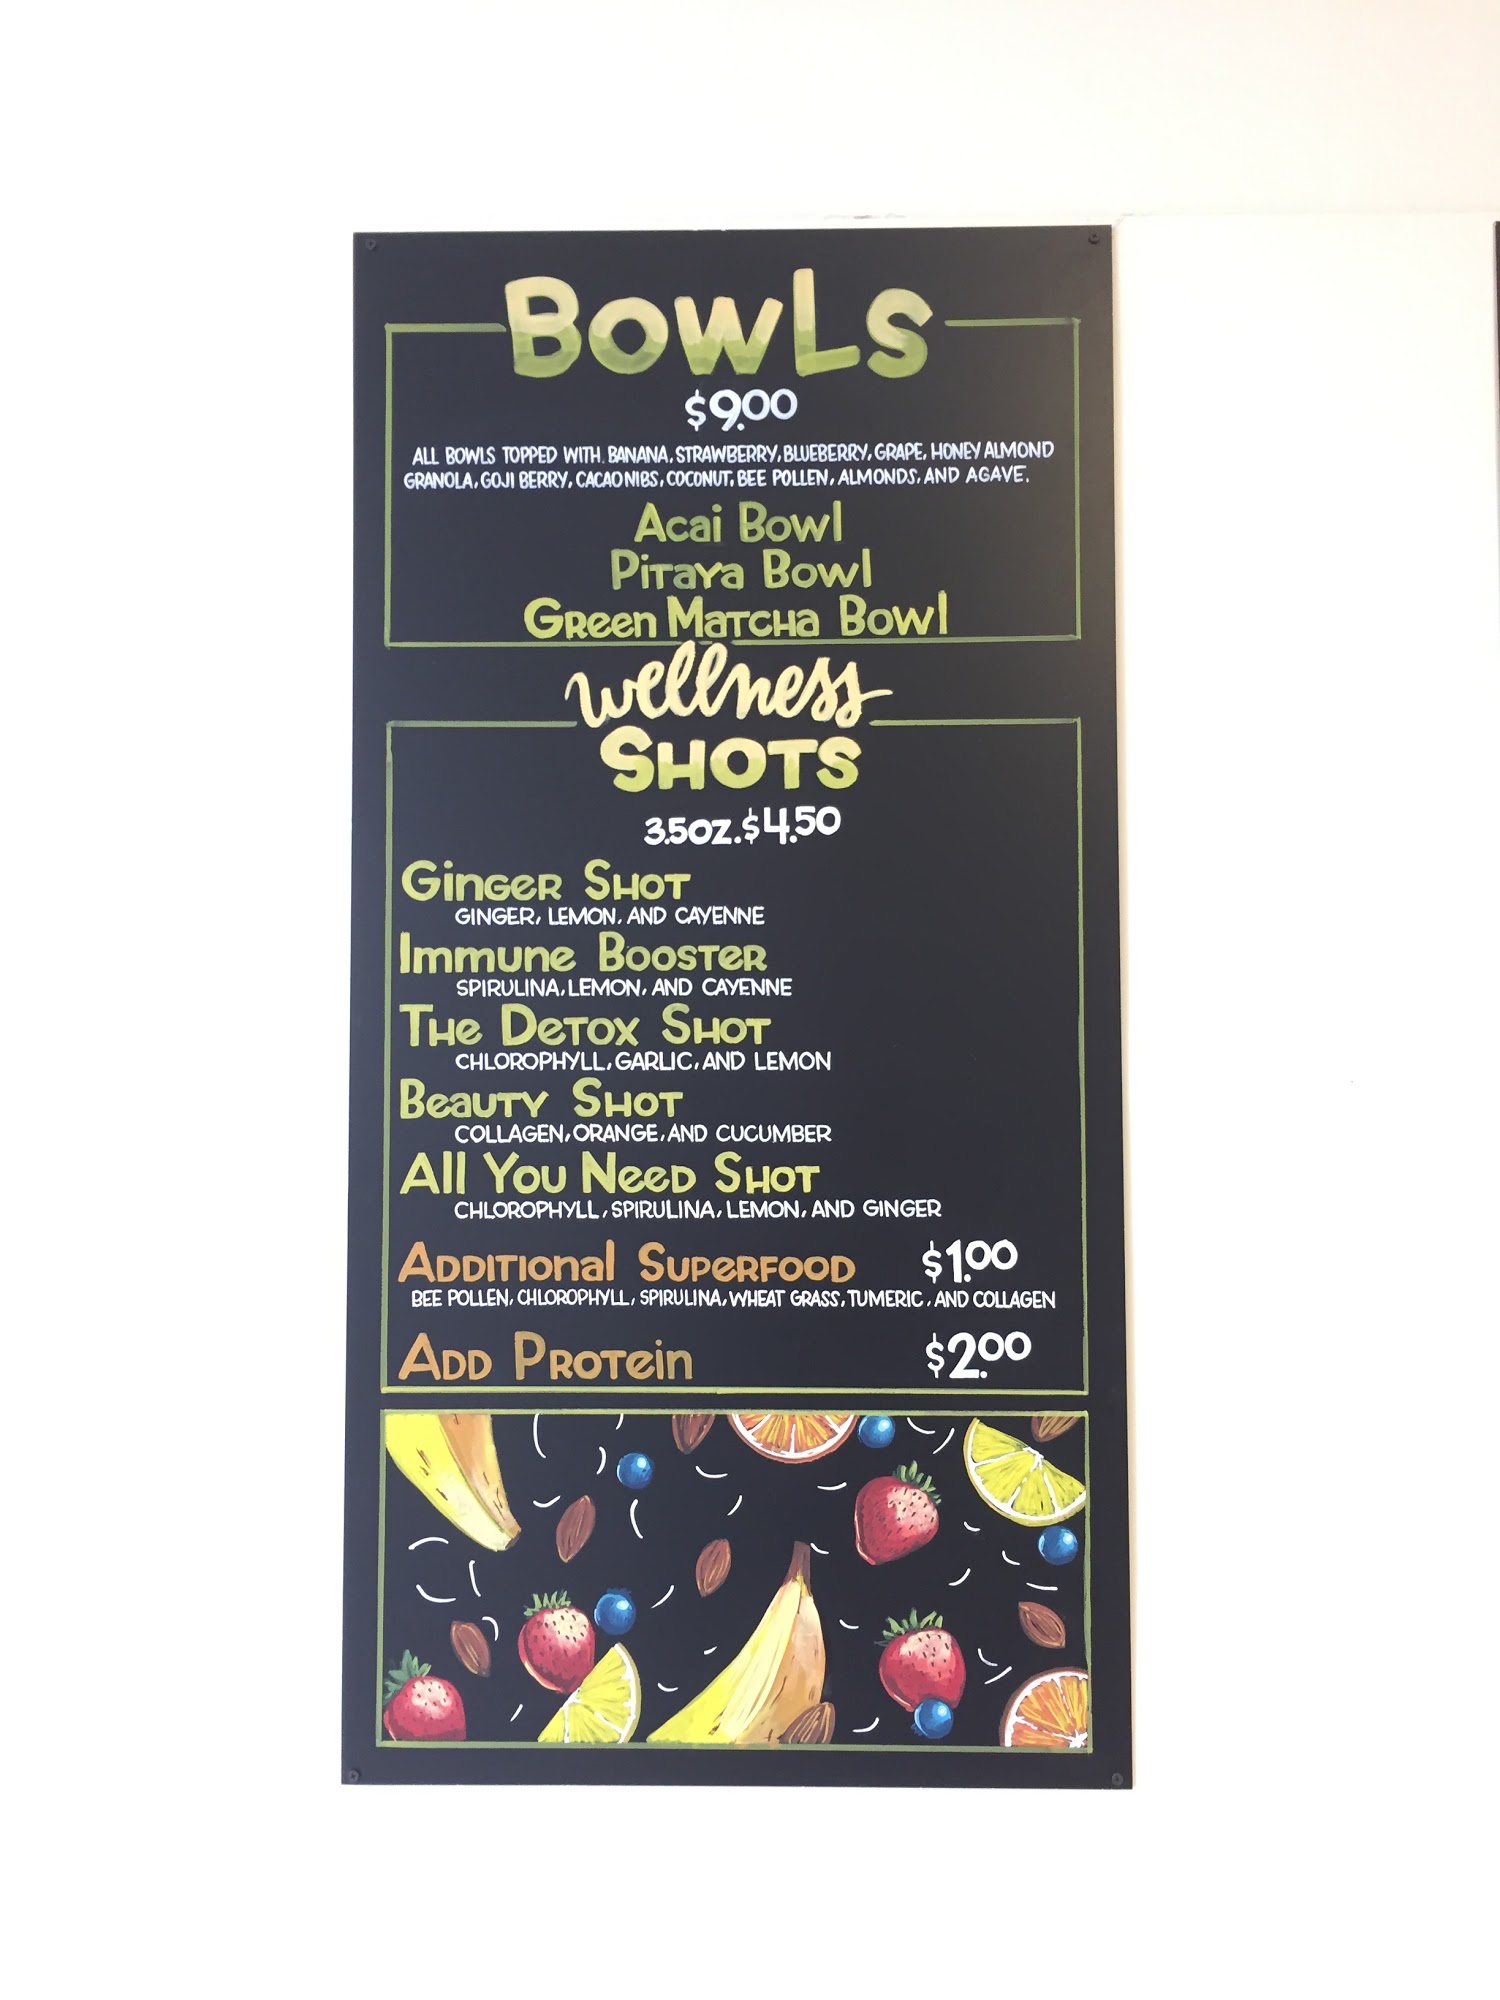 BOWLS
$9.00
ALL BOWLS TOPPED WITH. BANANA, STRAWBERRY, BLUEBERRY, GRAPE, HONEY ALMOND
GRANOLA, GOJI BERRY, CACAO NIBS, COCONUT, BEE POLLEN, ALMONDS, AND AGAVE.
Acai Bowl
Pitaya Bowl
Green Matcha Bowl
wellness
SHOTS
3.5oz. $4.50
Ginger Shot
GINGER, LEMON, AND CAYENNE
Immune Booster
SPIRULINA, LEMON, AND CAYENNE
The Detox Shot
CHLOROPHYLL, GARLIC, AND LEMON
Beauty Shot
COLLAGEN, ORANGE, AND CUCUMBER
All You Need Shot
CHLOROPHYLL, SPIRULINA, LEMON, AND GINGER
Additional Superfood $1.00
BEE POLLEN, CHLOROPHYLL, SPIRULINA, WHEAT GRASS, TUMERIC, AND COLLAGEN
Add Protein $2.00